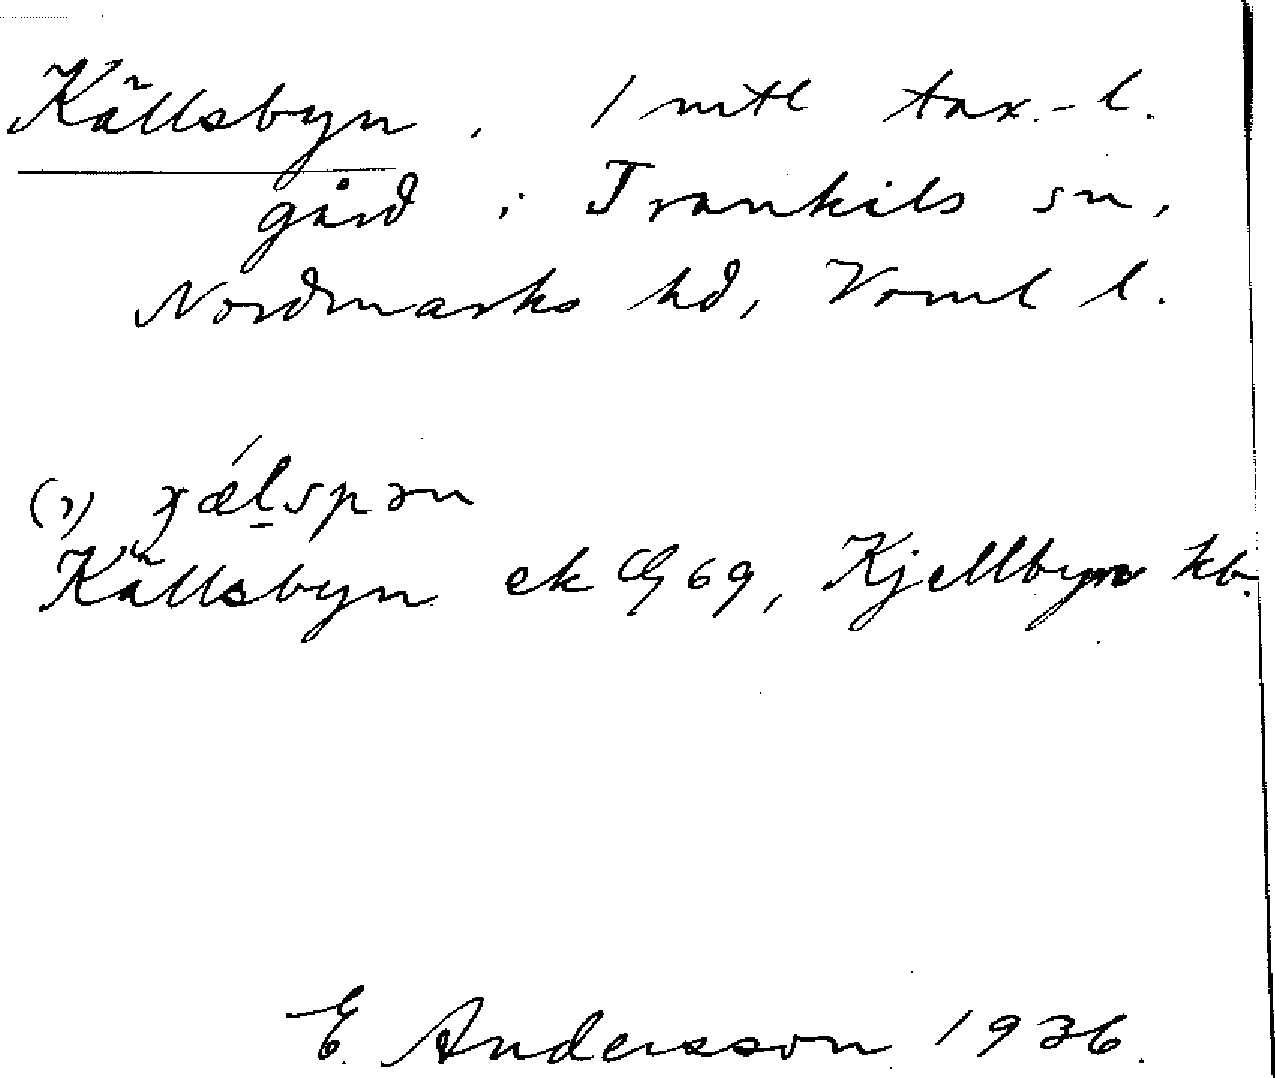 Källsbyn, 1 mtl tax.-l.
gård i Trankils sn,
Nordmarks hd, Värml l.
(i) ɟǽlspən
Källsbyn ek G 69, Kjellbyn kb.
E Andersson 1936.